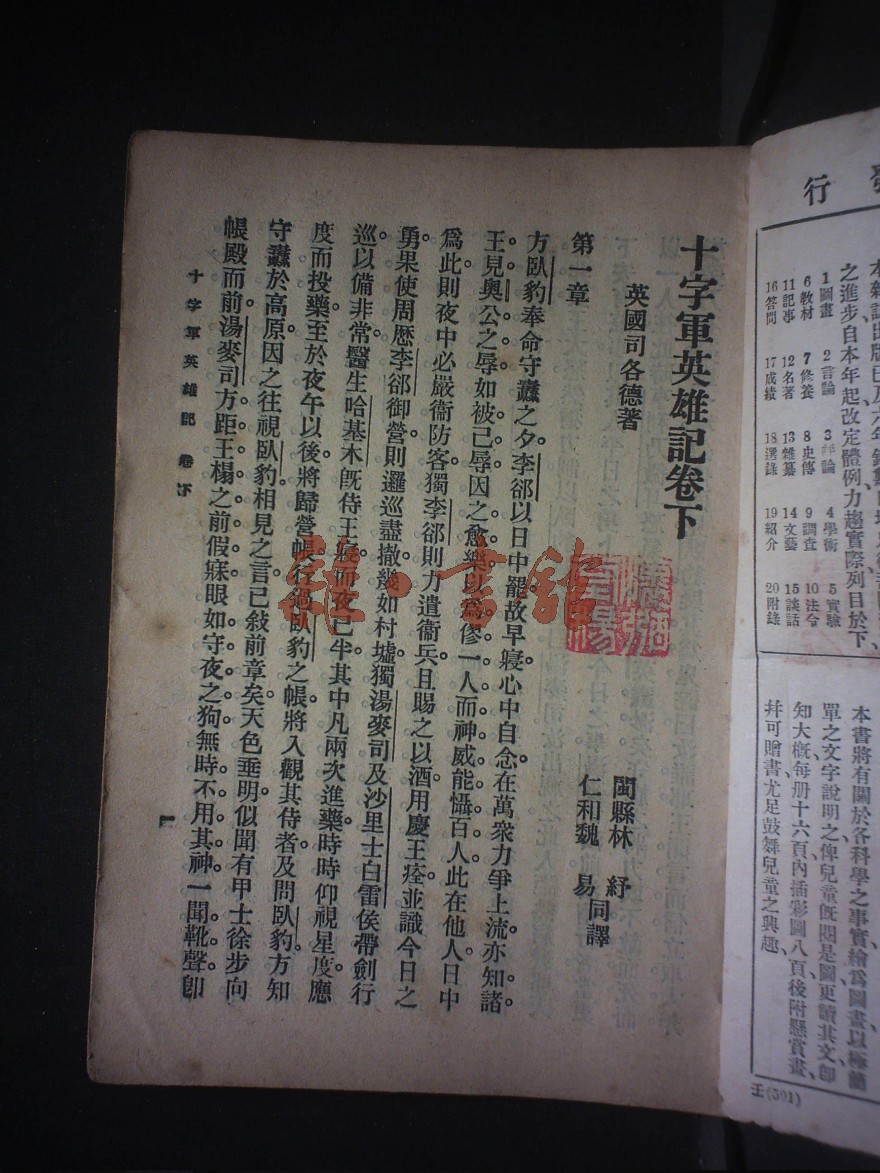 行
本雜誌出版已及六年
之進步自本年起改定體例力趨實際列目於下
1圖畫 2言論 3評論 4學術 5實驗
6教材 7修養 8史傳 9調查 10法令
11記事 12名著 13雜纂 14文藝 15談話
16答問 17成績 18選錄 19紹介 20附錄
本書將有關於各科學之事實繪爲圖畫以極簡
單之文字說明之俾兒童旣閱是圖更讀其文卽
知大槪每册十六頁內插彩圖八頁後附懸賞畫、
幷可贈書尤足鼓舞兒童之興趣
十字軍英雄記卷下
英國司各德著
閩縣林 紓
仁和魏 易 同譯
第一章
方臥豹奉命守纛之夕。李郤以日中罷。故早寢。心中自念在萬衆力爭上流。亦知諸
王見奧公之辱。如被己辱。因之愈樂。以爲傪一人而神威能懾百人。此在他人日中
爲此。則夜中必嚴衞防客。獨李郤則力遣衞兵。且賜之以酒。用慶王痊。並識今日之
勇。果使周歷李郤御營。則邏巡盡撤。幾如村墟。獨湯麥司及沙里士白雷侯帶劍行
巡。以備非常。醫生哈基木旣侍王寢。而夜已半。其中凡兩次進藥。時時仰視星度。應
度而投藥。至於夜午以後。將歸營帳。行過臥豹之帳。將入觀其侍者。及問臥豹。方知
守纛於高原。因之往視臥豹。相見之言。已敍前章矣。天色垂明。似聞有甲士徐步向
帳殿而前。湯麥司方距王榻之前假寐。眼如守夜之狗。無時不用其神。一聞靴聲卽
十字軍英雄記 卷下
一